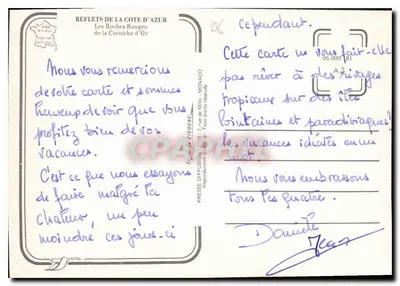 REFLETS DE LA COTE D'AZUR
Les Roches Rouges
de la Corniche d'Or
Nous vous remercions
de votre carte et sommes
heureux de voir que vous
profitez bien de vos
vacances.
C'est ce que nous essayons
de faire, malgré la
chaleur, un peu
moindre, ces jours-ci
PRESSE DIFFUSION
MONACO
cependant.
Cette carte ne vous fait-elle
pas rêver à des rivages
tropicaux sur des îles
lointaines et paradisiaques!
vacances idéales en un
mot.
Nous vous embrassons
tous les quatre.
Daniele
Jean